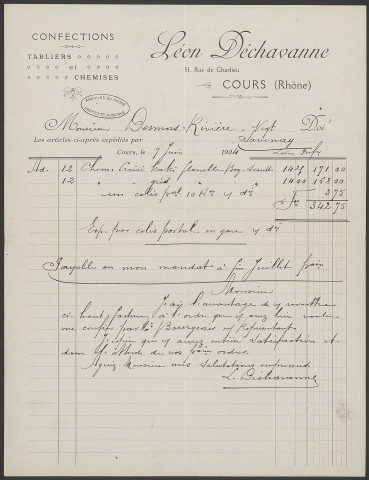 CONFECTIONS
TABLIERS
et
CHEMISES
Léon Déchavanne
51, Rue de Charlieu
COURS (Rhône)
Monsieur Desmars-Rivière, Negt Doit
Savenay
Les articles ci-après expédiés par
Cours, le 7 Juin 1924
Ad. 12 Chem. kaki flanelle 14 25 171 00
12 14 00 168 00
un colis p.al 10 Kos 3 75
Frs 342 75
Exp. par colis postal en gare
Payable en mon mandat à fin Juillet
Monsieur
J'ai l'avantage de vous remettre
ci haut facture à l'ordre que vous avez bien voulu
me confier par Mr Bourgeois
J'espère que vous aurez entière satisfaction et
dans l'attente de vos ordres.
Agréez Monsieur mes salutations empressées
L. Déchavanne